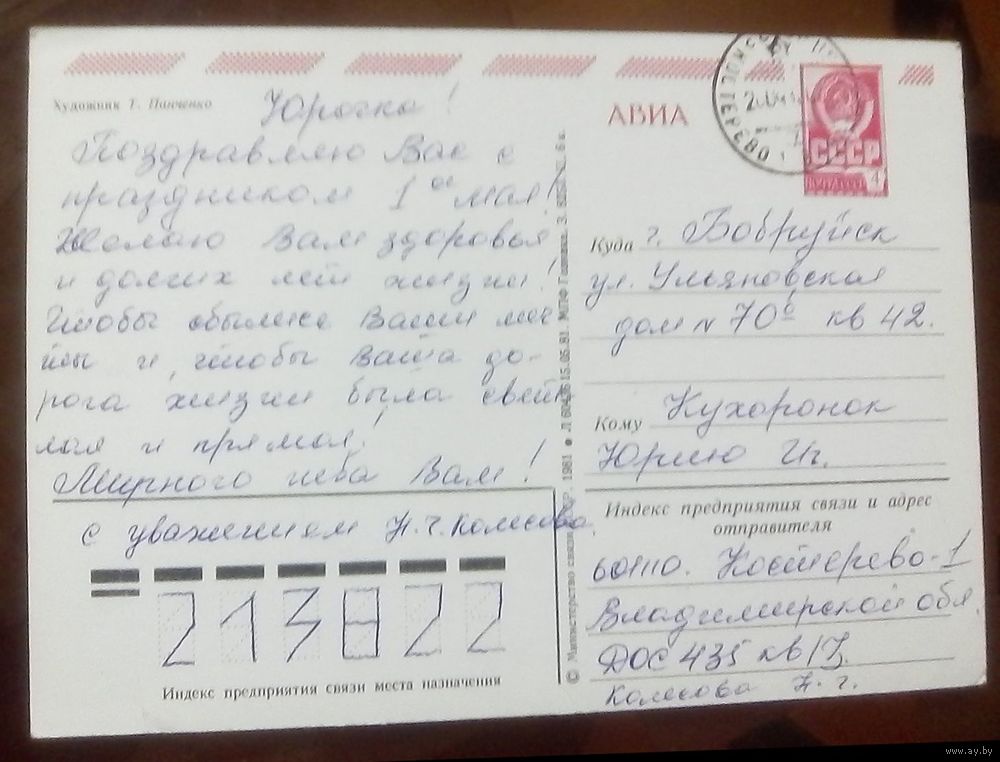 Художник Т. Панченко
Юрочка!
Поздравляю Вас с
праздником 1ое мая!
Желаю Вам здоровья
и долгих лет жизни!
Чтобы сбылись Ваши меч
ты и чтобы Ваша до-
рога жизни была свет
лая и прямая!
Мирного неба Вам!
с уважением Н.Г. Колесова
213822
Индекс предприятия связи места назначения
© Министерство связи СССР. 1981 ● Л 15.05.81. МПФ Гознака. З. 6 к.
АВИА
СССР
ПОЧТА
4
Куда г. Бобруйск
ул. Ульяновская
дом № 70б кв 42.
Кому Кухоронок
Юрию Иг.
Индекс предприятия связи и адрес
отправителя
601110. Костерево-1
Владимирской обл.
ДОС 435 кв 17.
Колесова Н.Г.
www.ay.by